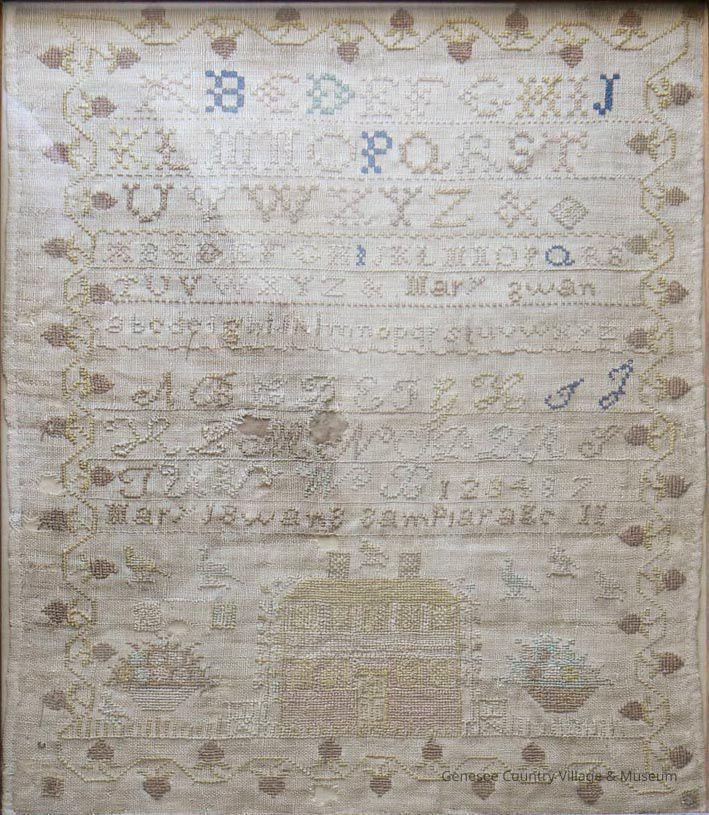 A B C D E F G H I J
K L M N O P Q R S T
U V W X Y Z &
A B C D E F G H I J K L M N O P Q R S
T U V W X Y Z & Mary swan
a b c d e f g h i j k l m n o p q r s t u v w x y z
A B C D E F G H I J
K L M N O P Q R S
T U V W 1 2 3 4 5 6 7
Mary swans samplar age 11
Genesee Country Village & Museum